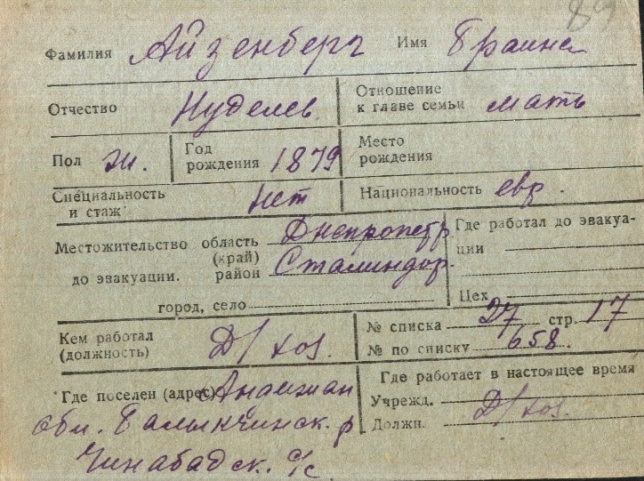 89
Фамилия Айзенберг Имя Браина
Отчество Нуделев. Отношение к главе семьи мать
Пол ж. Год рождения 1879 Место рождения
Специальность и стаж нет Национальность евр.
Местожительство до эвакуации. область (край) Днепропетр. Где работал до эвакуации
район Сталиндор.
город, село Цех
Кем работал (должность) Д/хоз. № списка 27 стр. 17
№ по списку 658.
Где поселен (адрес) Андижан Где работает в настоящее время
обл. Балыкчинск. р Учрежд.
Чинабадск. с/с Должн. Д/хоз.